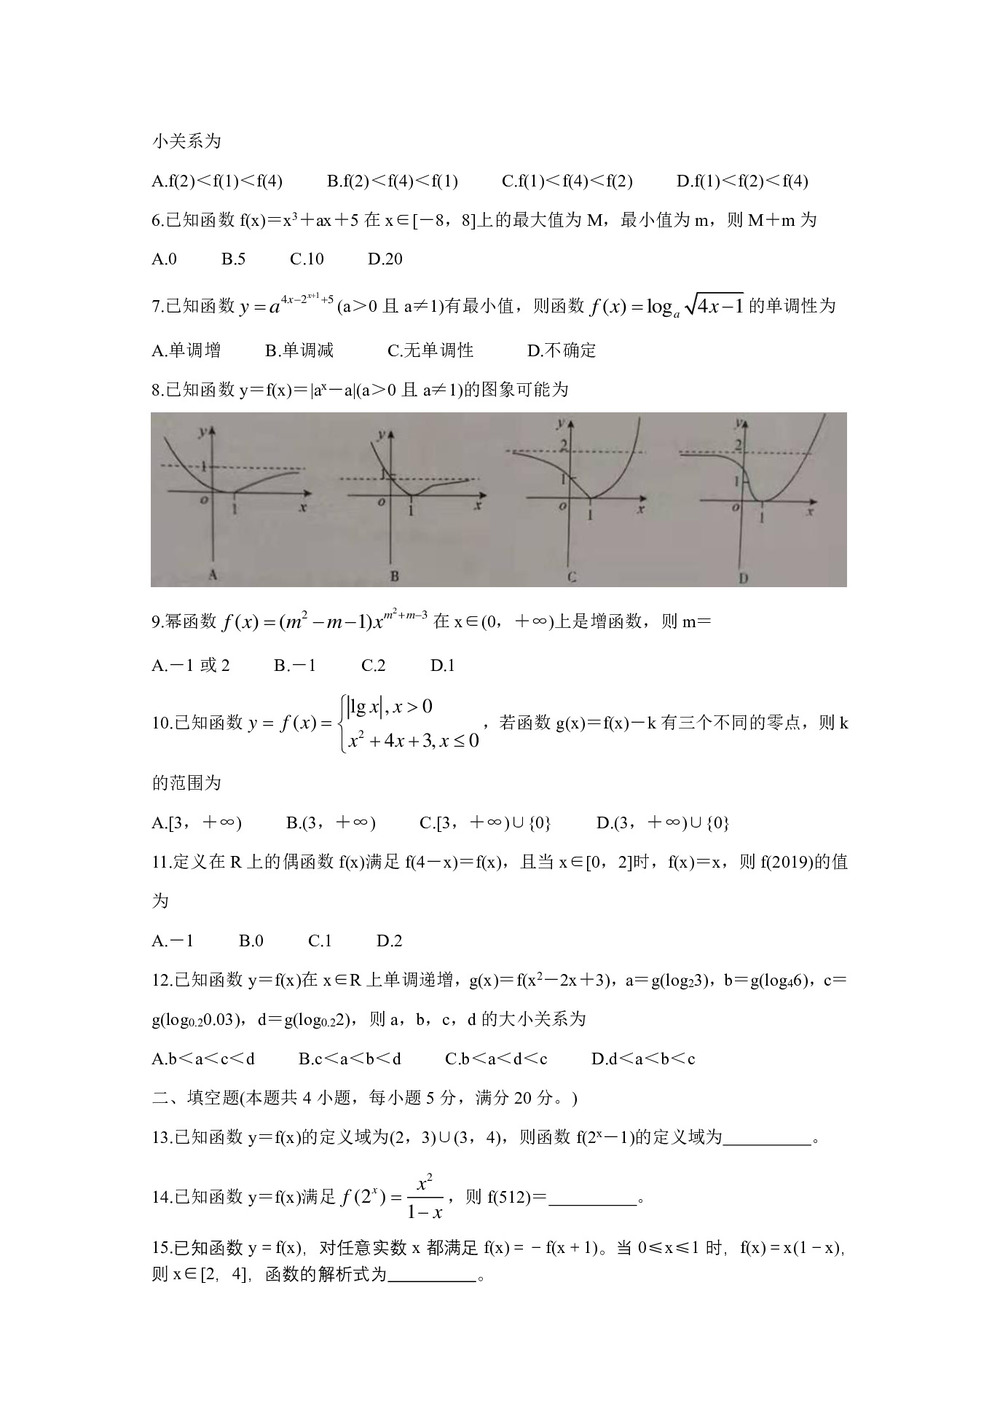 小关系为
A.f(2)<f(1)<f(4) B.f(2)<f(4)<f(1) C.f(1)<f(4)<f(2) D.f(1)<f(2)<f(4)
6.已知函数 f(x)=x³+ax+5 在 x∈[-8，8]上的最大值为 M，最小值为 m，则 M+m 为
A.0 B.5 C.10 D.20
7.已知函数 y=a^{4x-2^{x+1}+5}(a>0 且 a≠1)有最小值，则函数 f(x)=log_a√(4x-1) 的单调性为
A.单调增 B.单调减 C.无单调性 D.不确定
8.已知函数 y=f(x)=|aˣ-a|(a>0 且 a≠1)的图象可能为
y 1 o 1 x A
y 1 o 1 x B
y 2 1 o 1 x C
y 2 1 o 1 x D
9.幂函数 f(x)=(m²-m-1)x^{m²+m-3} 在 x∈(0，+∞)上是增函数，则 m=
A.-1 或 2 B.-1 C.2 D.1
10.已知函数 y=f(x)={|lg x|, x>0
x²+4x+3, x≤0，若函数 g(x)=f(x)-k 有三个不同的零点，则 k
的范围为
A.[3，+∞) B.(3，+∞) C.[3，+∞)∪{0} D.(3，+∞)∪{0}
11.定义在 R 上的偶函数 f(x)满足 f(4-x)=f(x)，且当 x∈[0，2]时，f(x)=x，则 f(2019)的值
为
A.-1 B.0 C.1 D.2
12.已知函数 y=f(x)在 x∈R 上单调递增，g(x)=f(x²-2x+3)，a=g(log₂3)，b=g(log₄6)，c=
g(log₀.₂0.03)，d=g(log₀.₂2)，则 a，b，c，d 的大小关系为
A.b<a<c<d B.c<a<b<d C.b<a<d<c D.d<a<b<c
二、填空题(本题共 4 小题，每小题 5 分，满分 20 分。)
13.已知函数 y=f(x)的定义域为(2，3)∪(3，4)，则函数 f(2ˣ-1)的定义域为__________。
14.已知函数 y=f(x)满足 f(2ˣ)=x²/(1-x)，则 f(512)=__________。
15.已知函数 y=f(x)，对任意实数 x 都满足 f(x)=-f(x+1)。当 0≤x≤1 时，f(x)=x(1-x)，
则 x∈[2，4]，函数的解析式为__________。